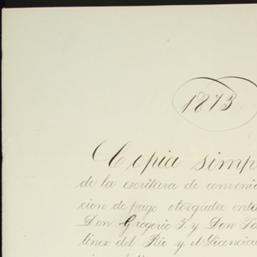 1873
Copia simp
de la escritura de convenio
cion de pago otorgada ent
Don Gregorio F. y Don
tinez del Rio y el Licencia